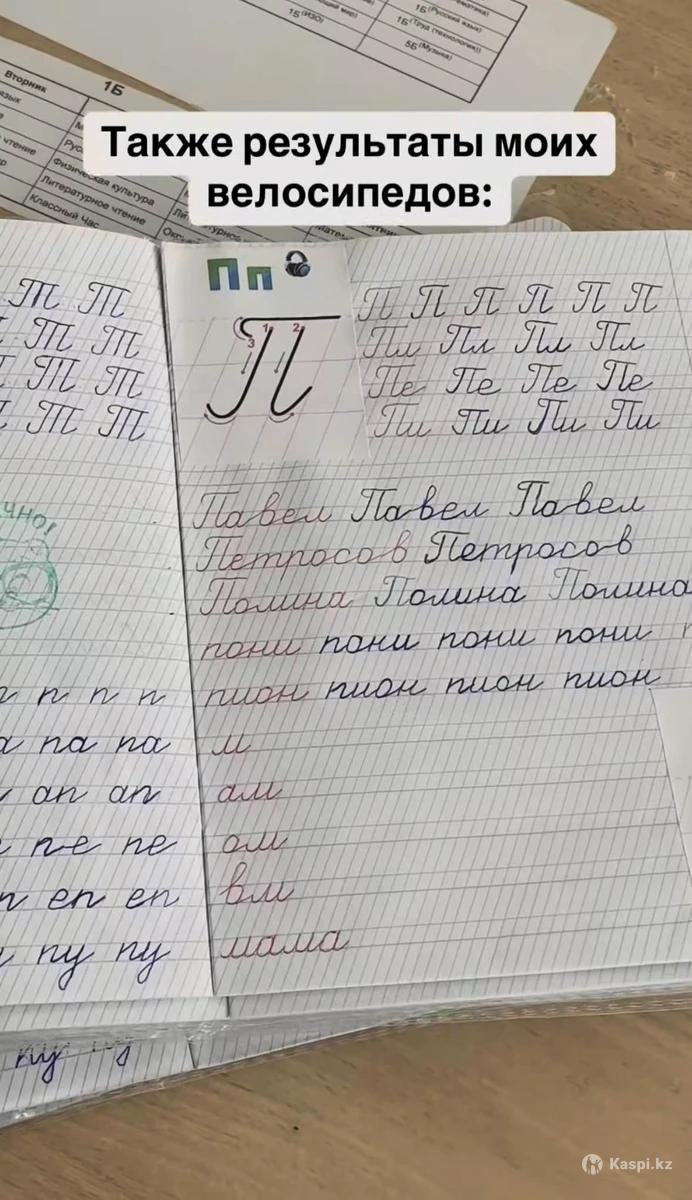 1Б (ИЗО)
1Б (Русский язык)
1Б (Труд (технология))
5Б (Музыка)
Вторник
1Б
язык
чтение
Физическая культура
Литературное чтение
Классный Час
Также результаты моих
велосипедов:
П п
3 1 2
Т Т
Т Т
Т Т
Т Т
П П П П П П
Пл Пл Пл Пл
Пе Пе Пе Пе
Пи Пи Пи Пи
Павел Павел Павел
Петросов Петросов
Полина Полина Полина
пони пони пони пони
пион пион пион пион
м
ам
ом
вм
мама
п п п
па па
ап ап
пе пе
еп еп
пу пу
пу пу
Kaspi.kz